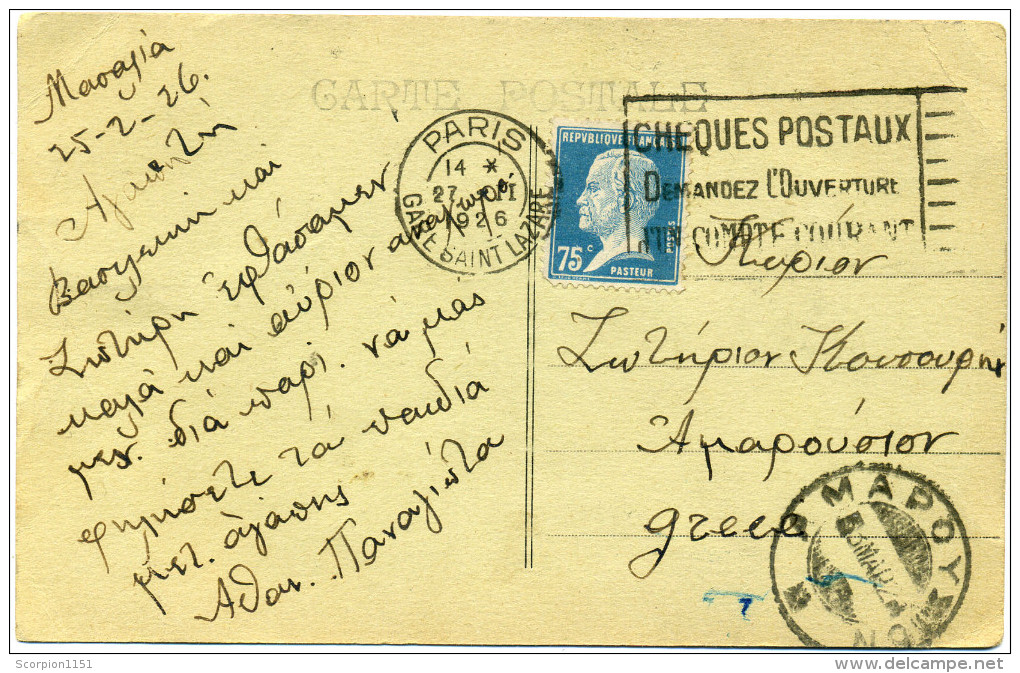 CARTE POSTALE
Μασαλία
25-2-26.
Αγαπητή
Βασιλική και
Σωτήρη έφθάσαμεν
καλά και αύριον αναχωρού
μεν διά παρί. νά μάς
φιλήσετε τά παιδιά
μετ. άγάπης
Αθαν. Παναγιώτα
PARIS
14 *
27
1926
GARE SAINT LAZARE
REPVBLIQVE FRANCAISE
75 c
POSTES
PASTEUR
CHEQUES POSTAUX
DEMANDEZ L'OUVERTURE
D'UN COMPTE COURANT
Κύριον
Σωτήριον
Άμαρούσιον
greece
ΜΑΡΟΥΣ
Scorpion1151
delcampe.net